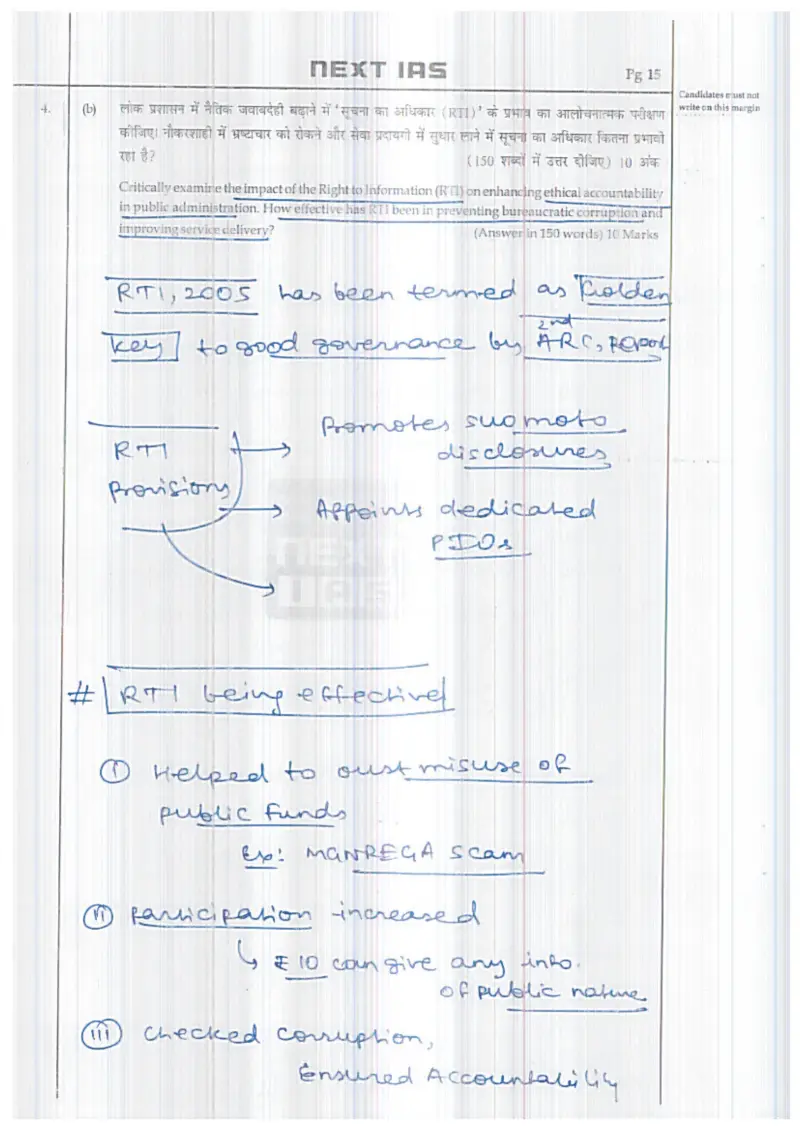 NEXT IAS
Pg 15
Candidates must not
write on this margin
4. (b) लोक प्रशासन में नैतिक जवाबदेही बढ़ाने में 'सूचना का अधिकार (RTI)' के प्रभाव का आलोचनात्मक परीक्षण
कीजिए। नौकरशाही में भ्रष्टाचार को रोकने और सेवा प्रदायगी में सुधार लाने में सूचना का अधिकार कितना प्रभावी
रहा है? (150 शब्दों में उत्तर दीजिए) 10 अंक
Critically examine the impact of the Right to Information (RTI) on enhancing ethical accountability
in public administration. How effective has RTI been in preventing bureaucratic corruption and
improving service delivery? (Answer in 150 words) 10 Marks
RTI, 2005 has been termed as Golden
key to good governance by 2nd ARC, report
Promotes suo moto
RTI disclosures
Provisions
Appoints dedicated
PIOs
NEXT
IAS
# RTI being effective
(i) Helped to oust misuse of
public funds
Ex: MGNREGA scam
(ii) Participation increased
↳ ₹10 can give any info.
of public nature
(iii) checked corruption,
Ensured Accountability